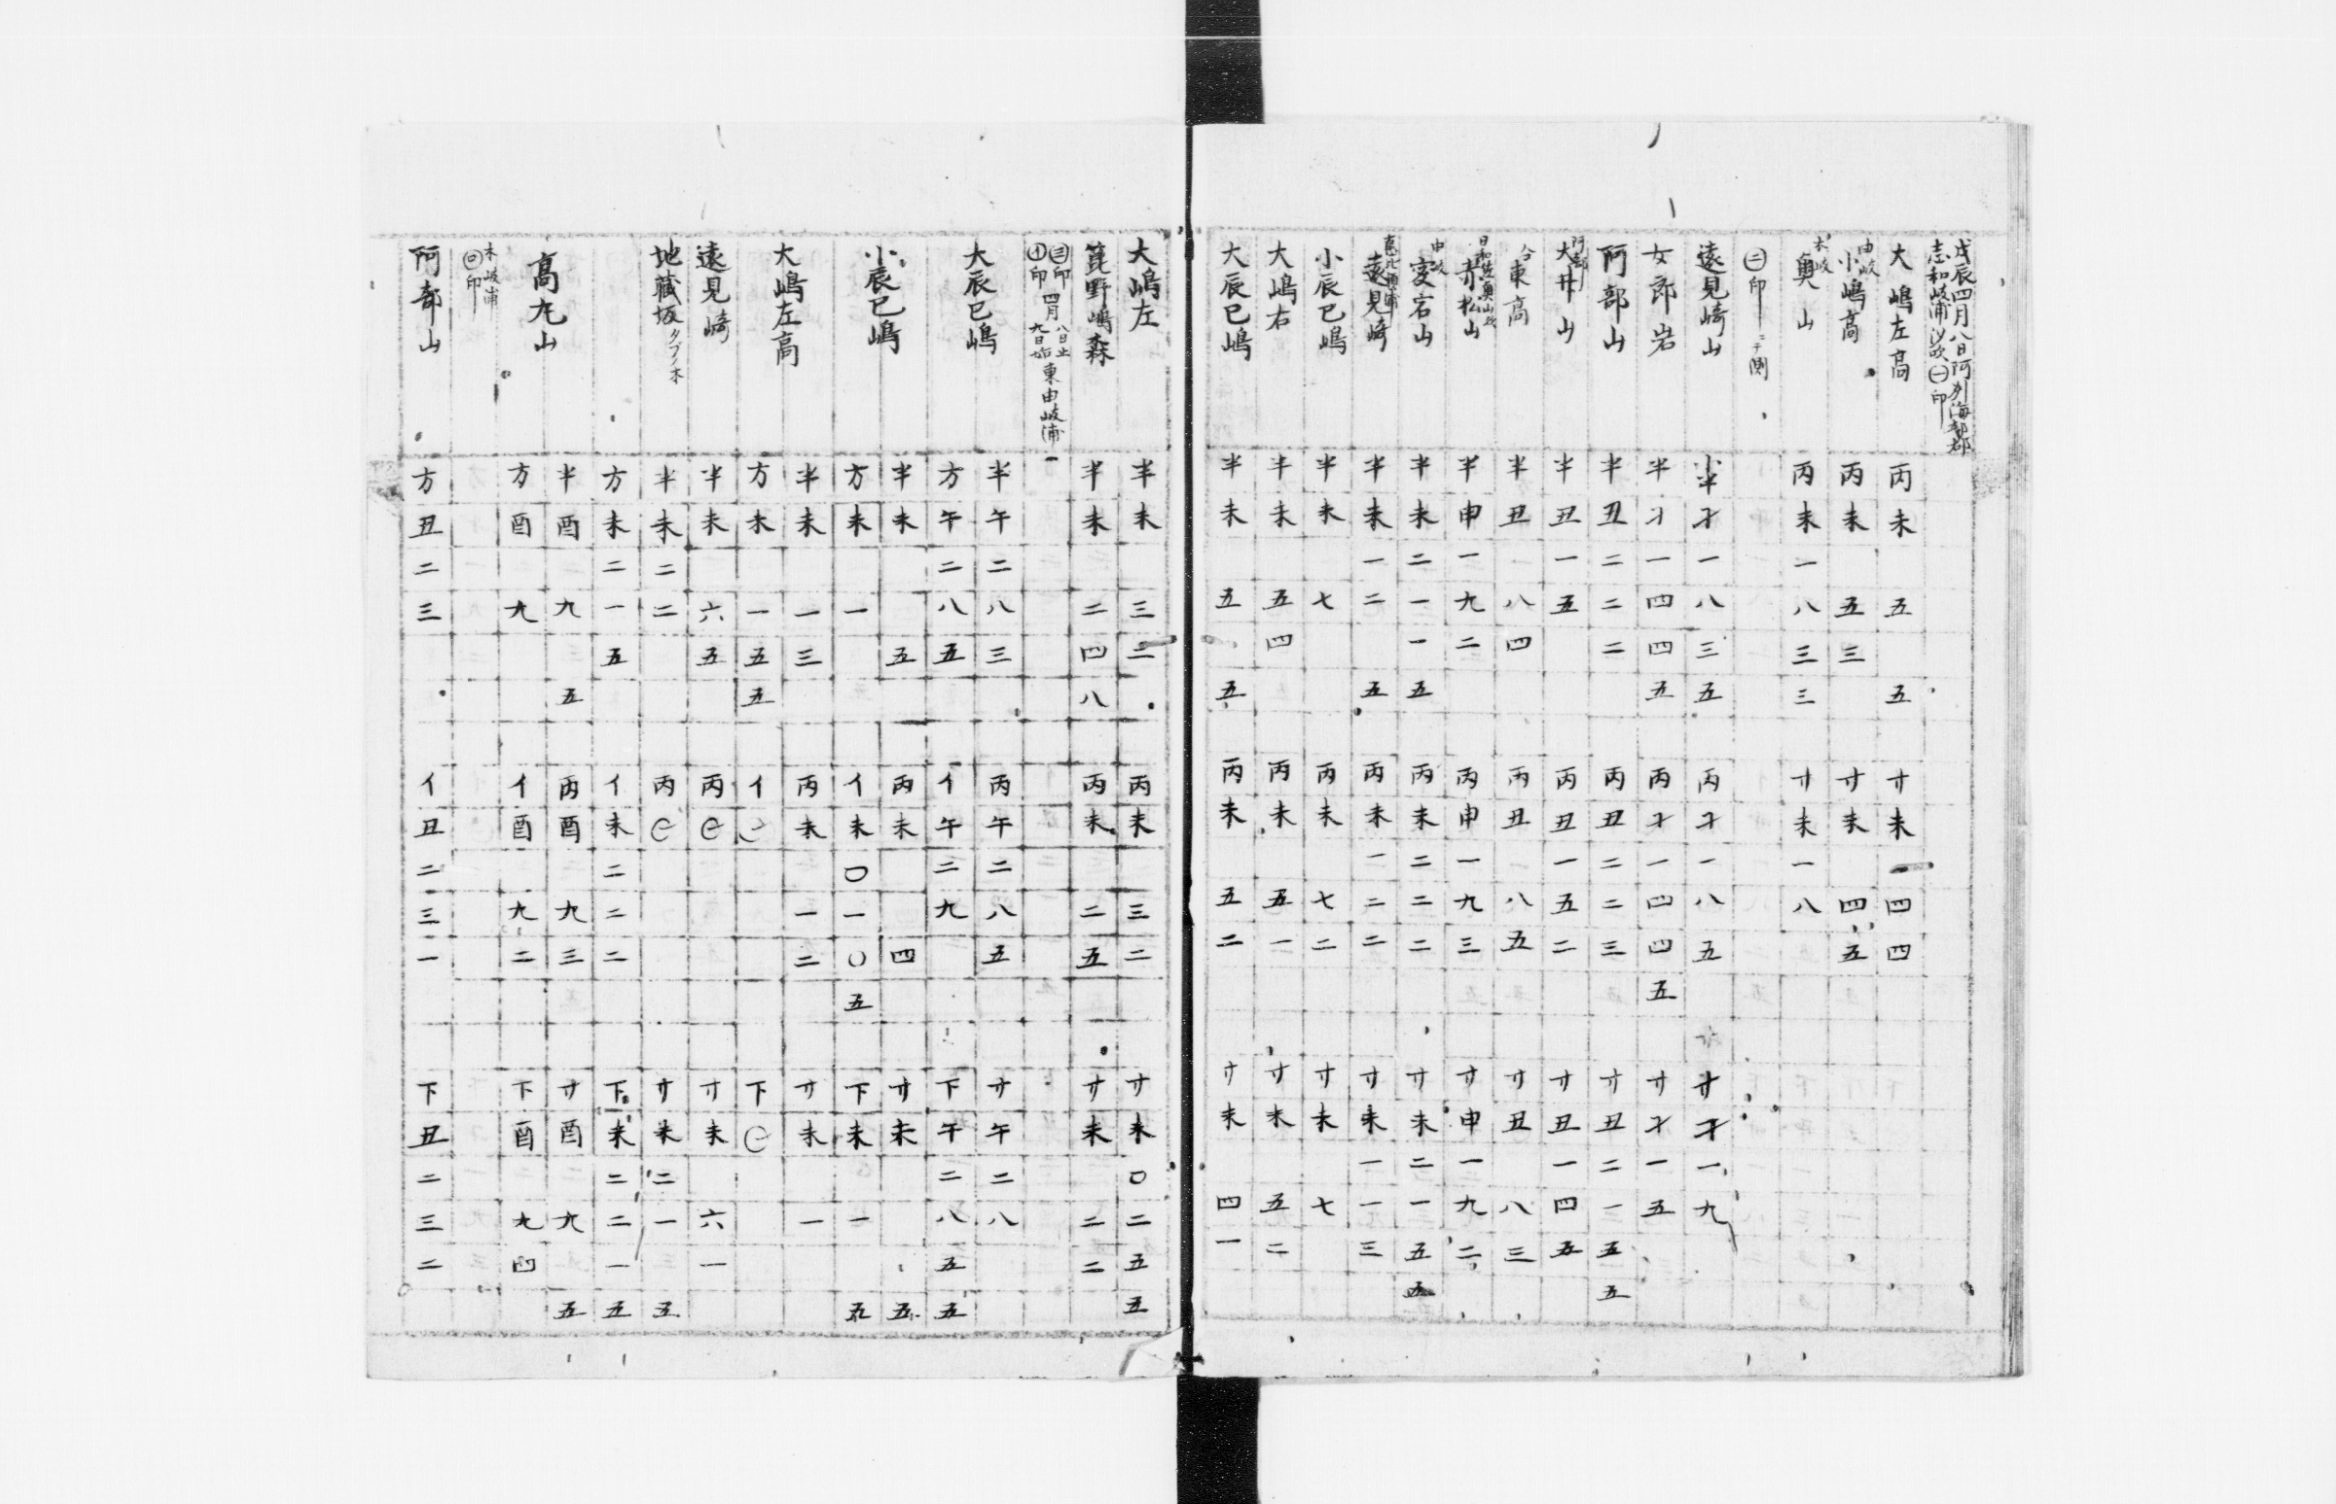 戊辰四月八日阿刕海部郡
志和岐浦 ㊀印
大嶋左高 丙未 五 五 寸未 四四
由岐 小嶋高 丙未 五三 寸未 四五
木岐 奥山 丙未一八三三 寸未一八
㊁印ニテ測
遠見崎山 半才一八三五 丙才一八五 寸才一九
女郎岩 半才一四四五 丙才一四四五 寸才一五
阿部山 半丑二二二 丙丑二二三 寸丑二一五五
阿部 大井山 半丑一五 丙丑一五二 寸丑一四五
仝 東高 半丑 八四 丙丑 八五 寸丑 八三
日和佐奥山 赤松山 半申一九二 丙申一九三 寸申一九二
由岐 愛宕山 半未二一一五 丙未二二二 寸未二一五五
遠見崎 半未一二 五 丙未一二二 寸未一一三
小辰巳嶋 半未 七 丙未 七二 寸未 七
大嶋右 半未 五四 丙未 五一 寸未 五二
大辰巳嶋 半未 五 五 丙未 五二 寸未 四一
大嶋左 半未 三二 丙未 三二 寸未〇二五五
箆野嶋森 半未 二四八 丙未 二五 寸未 二二
㊂印 四月 八日止 九日始 東由岐浦
㊉印
大辰巳嶋 半午二八三 丙午二八五 寸午二八
方午二八五 イ午二九 下午二八五五
小辰巳嶋 半未 五 丙未 四 寸未 五
方未 一 イ未〇一〇五 下未 一 九
大嶋左高 半未 一三 丙未 一二 寸未 一
方未 一五五 イ㋥ 下㋥
遠見崎 半未 六五 丙㋥ 寸未 六一
地蔵坂 タブノ木 半未二二 丙㋥ 寸未二一 五
方未二一五 イ未二二二 下未二二一五
高丸山 半酉 九 五 丙酉 九三 寸酉 九 五
方酉 九 イ酉 九二 下酉 九四
木岐浦
㊃印
阿部山 方丑二三 イ丑二三一 下丑二三二